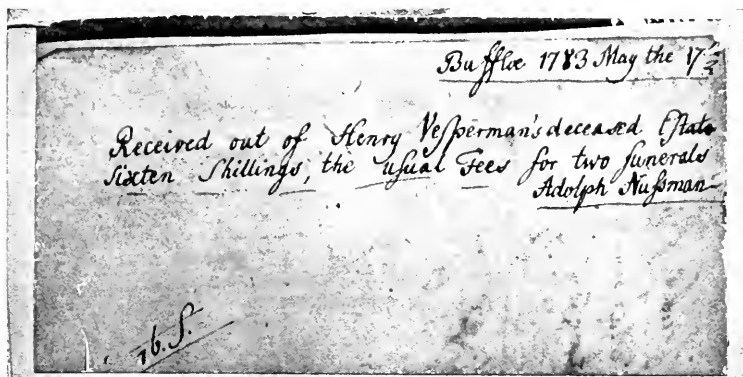 Buffloe 1783 May the 17th
Received out of Henry Veſperman's deceased Eſtate
Sixten Shillings, the uſual Fees for two funerals
Adolph Nuſsman
16. S.